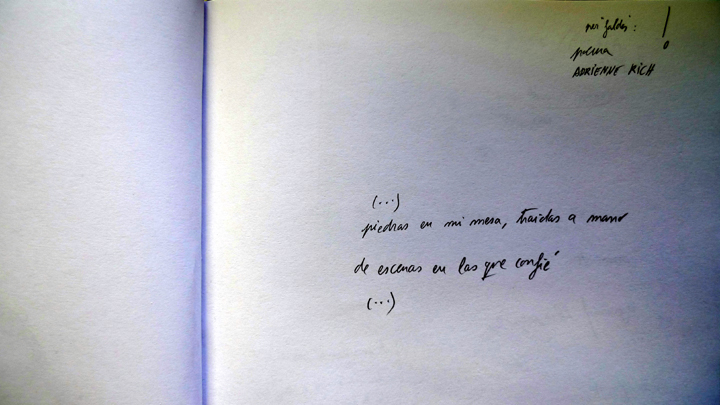 !
poema
ADRIENNE RICH
(...)
piedras en mi mesa, traídas a mano
de escenas en las que confié
(...)